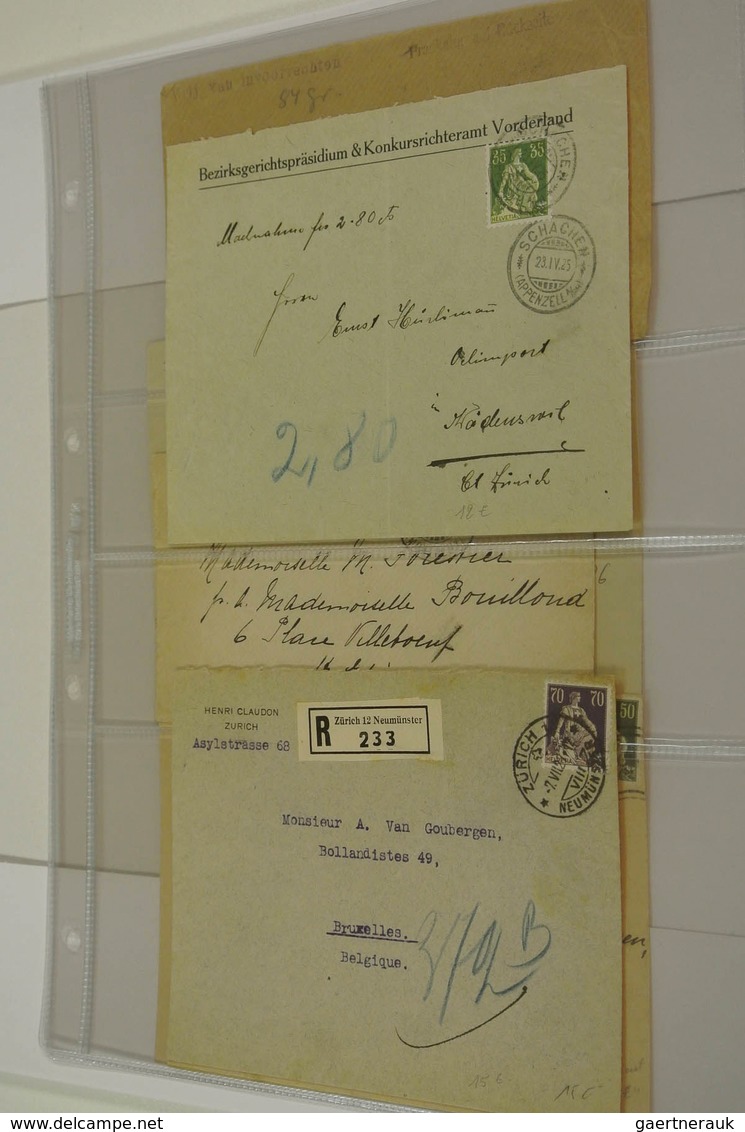 van
84 gr.
Bezirksgerichtspräsidium & Konkursrichteramt Vorderland
35 35
HELVETIA
SCHACHEN
23.IV.25
(APPENZELL
2.80
Herrn
Ernst Hürlimann
Oelimport
in
Wädenswil
Ct Zürich
2,80
12 €
Mademoiselle M. Forestier
p. a. Mademoiselle Bouillond
6 Place Villeboeuf
6
HENRI CLAUDON
ZURICH
Asylstrasse 68
R Zürich 12 Neumünster
233
70 70
50
ZÜRICH
VIII
NEUMÜNSTER
Monsieur A. Van Goubergen,
Bollandistes 49,
Bruxelles.
Belgique.
en,
15 €
gaertnerauk @ delcampe.net